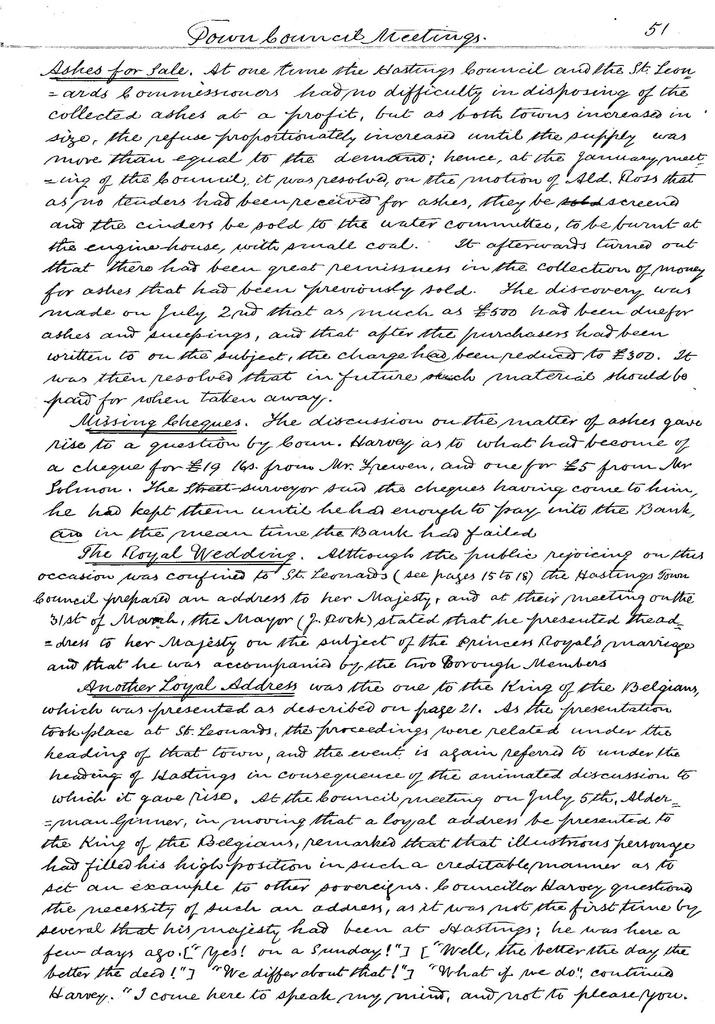 Town Council Meetings. 51
Ashes for Sale. At one time the Hastings Council and the St. Leon
=ards Commissioners had no difficulty in disposing of the
collected ashes at a profit, but as both towns increased in
size, the refuse proportionately increased until the supply was
more than equal to the demand; hence, at the January meet
=ing of the Council, it was resolved, on the motion of Ald. Ross that
as no tenders had been received for ashes, they be sold screend
and the cinders be sold to the water committee, to be burnt at
the engine-house, with small coal. It afterwards turned out
that there had been great remissness in the collection of money
for ashes that had been previously sold. The discovery was
made on July 2nd that as much as £500 had been due for
ashes and sweepings, and that after the purchasers had been
written to on the subject, the charge had been reduced to £300. It
was then resolved that in future such material should be
paid for when taken away.
Missing Cheques. The discussion on the matter of ashes gave
rise to a question by Coun. Harvey as to what had become of
a cheque for £19 16s. from Mr. Frewen, and one for £5 from Mr
Solmon. The Street-surveyor said the cheques having come to him,
he had kept them until he had enough to pay into the Bank,
and in the mean time the Bank had failed
The Royal Wedding. Although the public rejoicing on this
occasion was confined to St. Leonards (see pages 15 to 18) the Hastings Town
Council prepared an address to her Majesty, and at their meeting on the
31st of March, the Mayor (J. Rock) stated that he presented the ad=
=dress to her Majesty on the subject of the Princess Royal's marriage
and that he was accompanied by the two Borough Members
Another Loyal Address was the one to the King of the Belgians,
which was presented as described on page 21. As the presentation
took place at St. Leonards, the proceedings were related under the
heading of that town, and the event is again referred to under the
heading of Hastings in consequence of the animated discussion to
which it gave rise. At the Council meeting on July 5th, Alder=
=man Ginner, in moving that a loyal address be presented to
the King of the Belgians, remarked that that illustrious personage
had filled his high position in such a creditable manner as to
set an example to other sovereigns. Councillor Harvey questiond
the necessity of such an address, as it was not the first time by
several that his majesty had been at Hastings; he was here a
few days ago. ["Yes! on a Sunday!"] ["Well, the better the day the
better the deed!"] "We differ about that!"] "What if we do", continued
Harvey. "I come here to speak my mind, and not to please you.